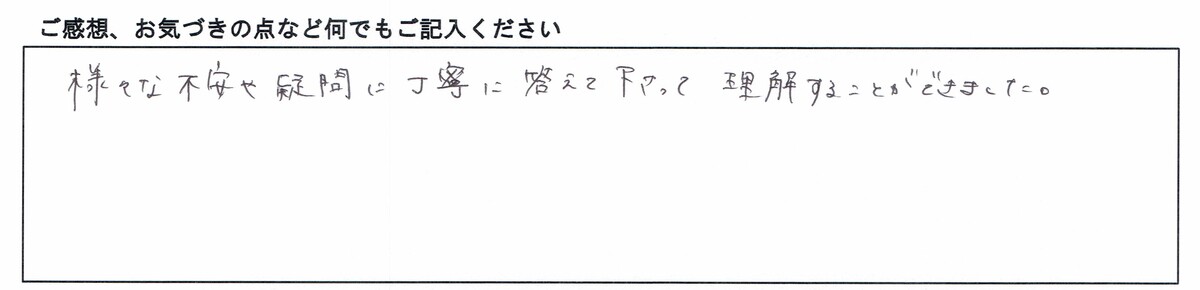 ご感想、お気づきの点など何でもご記入ください
様々な不安や疑問に丁寧に答えて下さって 理解することができました。